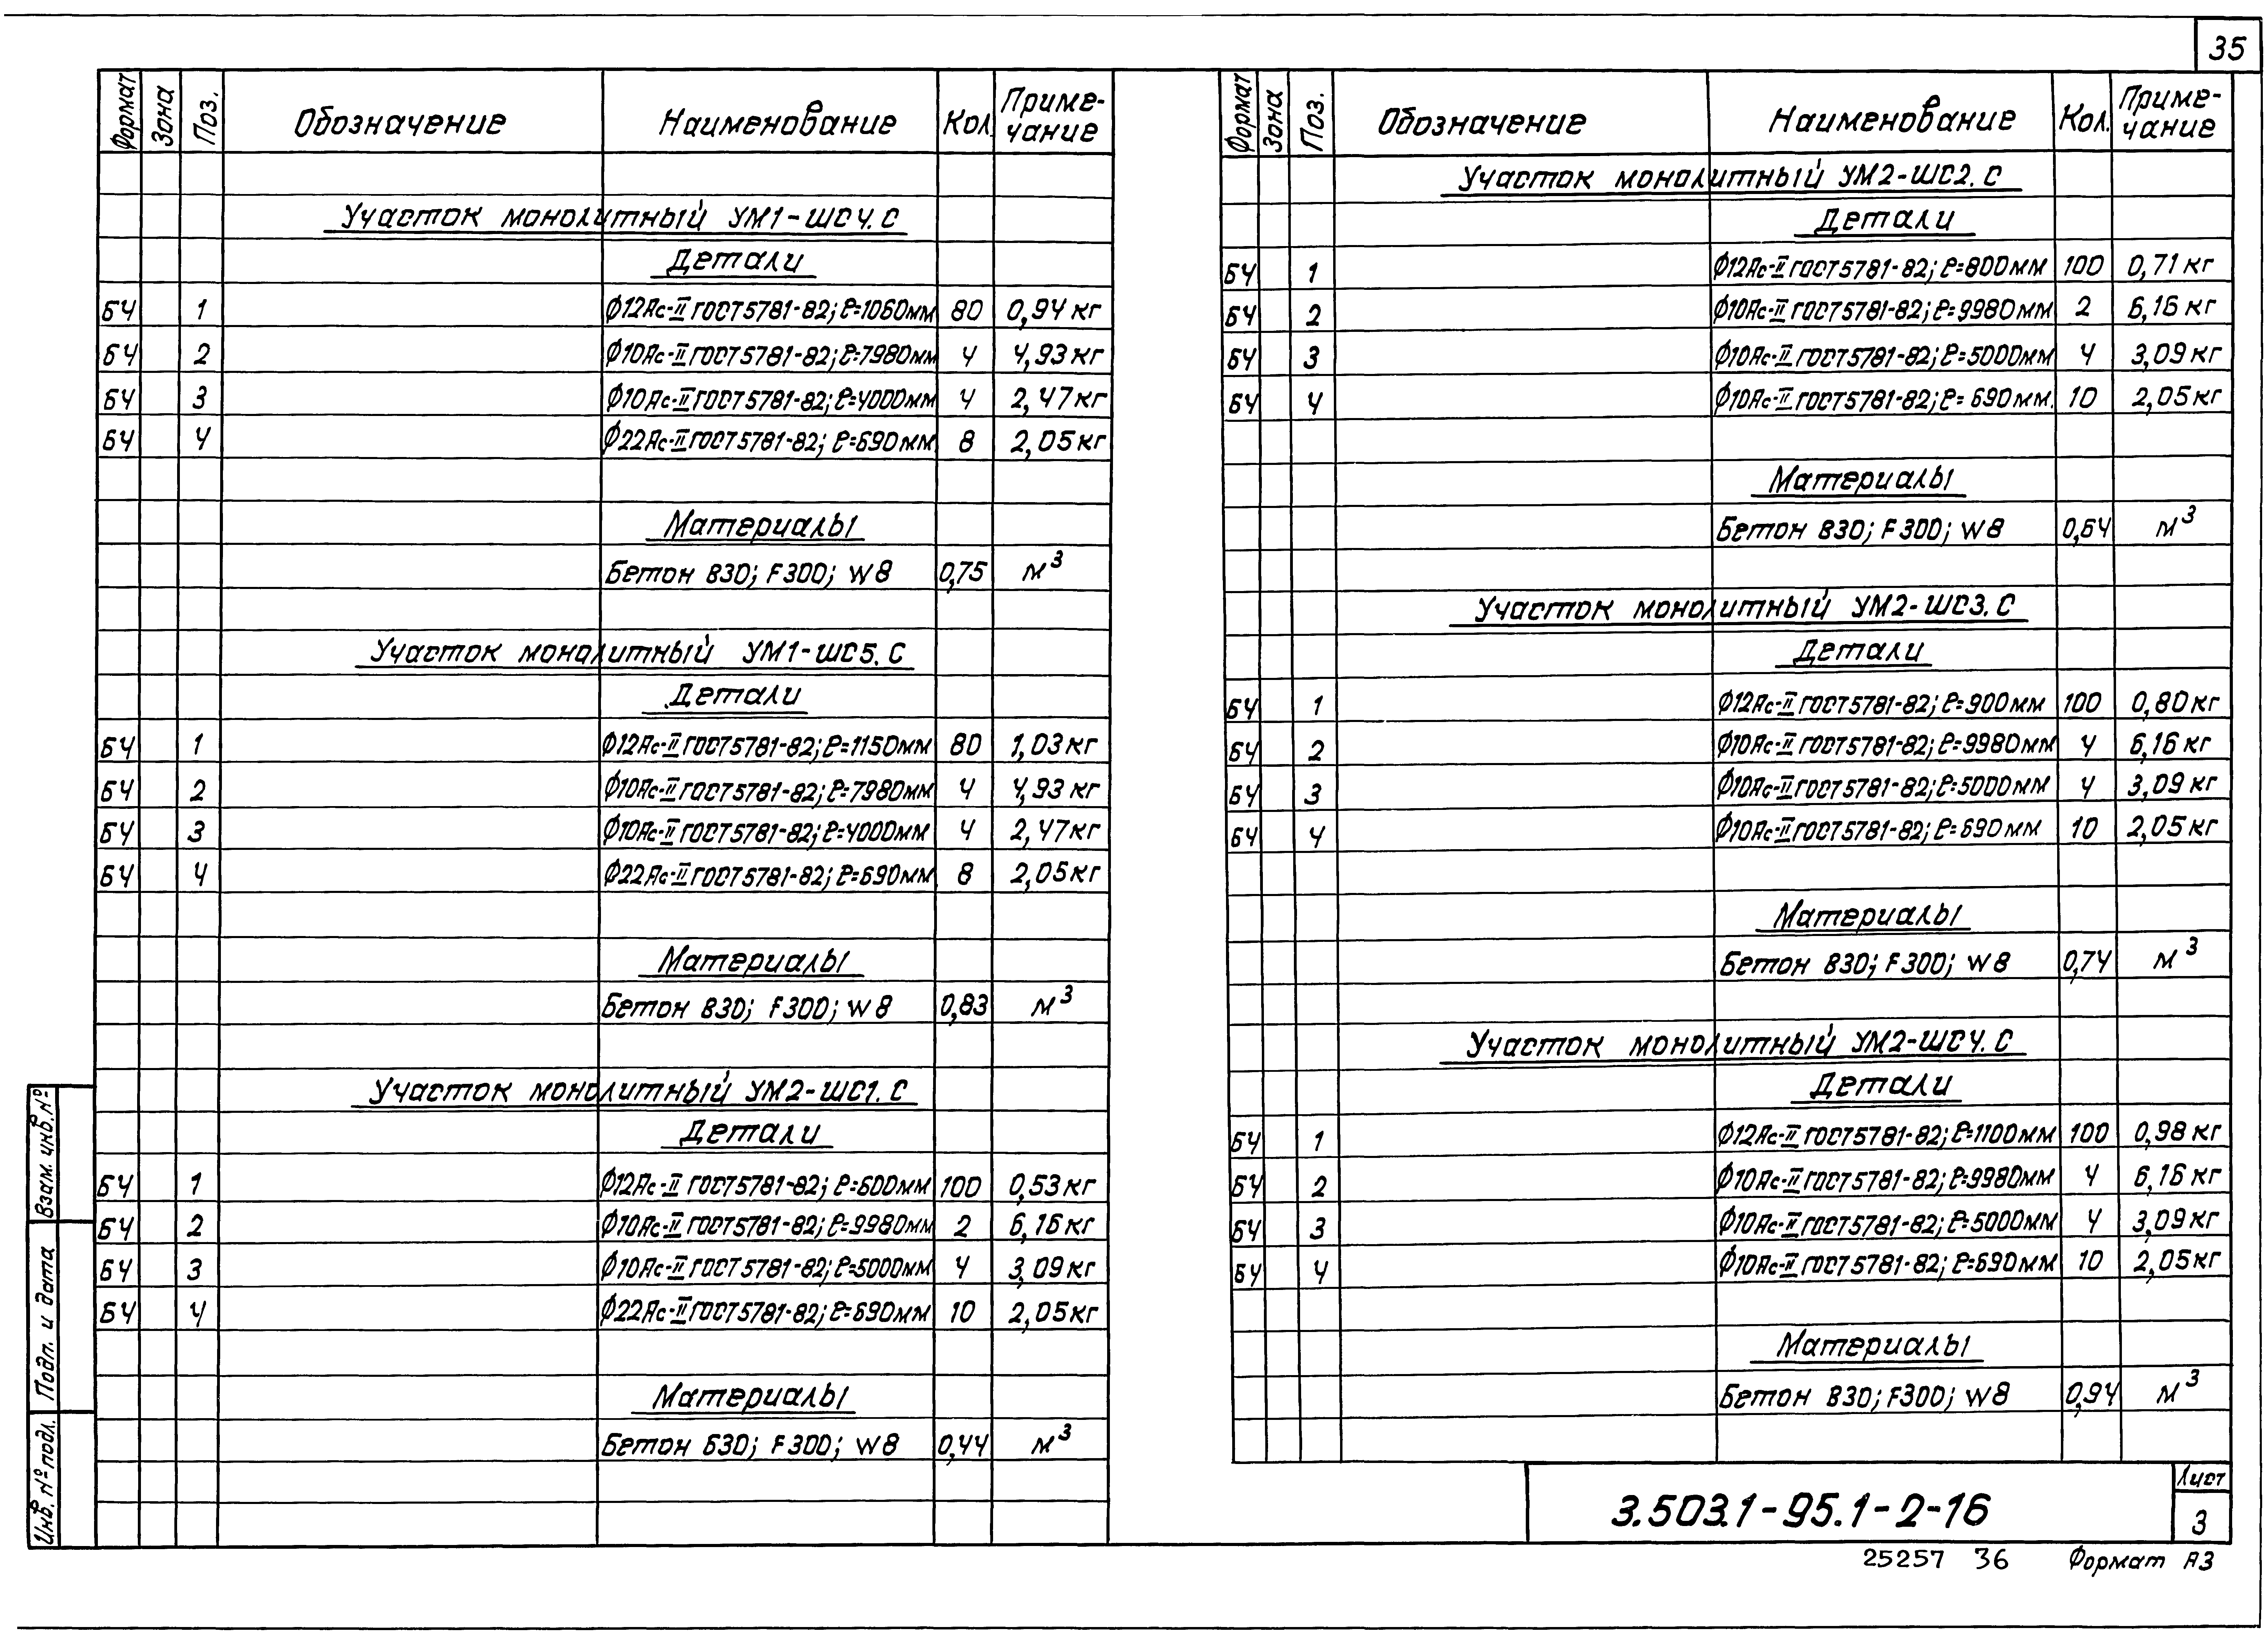 35
Формат Зона Поз. Обозначение Наименование Кол. Приме-чание
Участок монолитный УМ1-ШС4.С
Детали
БЧ 1 Ф12Ас-II ГОСТ5781-82; ℓ=1060мм 80 0,94кг
БЧ 2 Ф10Ас-II ГОСТ5781-82; ℓ=7980мм 4 4,93кг
БЧ 3 Ф10Ас-II ГОСТ5781-82; ℓ=4000мм 4 2,47кг
БЧ 4 Ф22Ас-II ГОСТ5781-82; ℓ=690мм 8 2,05кг
Материалы
Бетон В30; F300; W8 0,75 м³
Участок монолитный УМ1-ШС5.С
Детали
БЧ 1 Ф12Ас-II ГОСТ5781-82; ℓ=1150мм 80 1,03кг
БЧ 2 Ф10Ас-II ГОСТ5781-82; ℓ=7980мм 4 4,93кг
БЧ 3 Ф10Ас-II ГОСТ5781-82; ℓ=4000мм 4 2,47кг
БЧ 4 Ф22Ас-II ГОСТ5781-82; ℓ=690мм 8 2,05кг
Материалы
Бетон В30; F300; W8 0,83 м³
Участок монолитный УМ2-ШС1.С
Детали
БЧ 1 Ф12Ас-II ГОСТ5781-82; ℓ=600мм 100 0,53кг
БЧ 2 Ф10Ас-II ГОСТ5781-82; ℓ=9980мм 2 6,16кг
БЧ 3 Ф10Ас-II ГОСТ5781-82; ℓ=5000мм 4 3,09кг
БЧ 4 Ф22Ас-II ГОСТ5781-82; ℓ=690мм 10 2,05кг
Материалы
Бетон Б30; F300; W8 0,44 м³
Формат Зона Поз. Обозначение Наименование Кол. Приме-чание
Участок монолитный УМ2-ШС2.С
Детали
БЧ 1 Ф12Ас-II ГОСТ5781-82; ℓ=800мм 100 0,71кг
БЧ 2 Ф10Ас-II ГОСТ5781-82; ℓ=9980мм 2 6,16кг
БЧ 3 Ф10Ас-II ГОСТ5781-82; ℓ=5000мм 4 3,09кг
БЧ 4 Ф10Ас-II ГОСТ5781-82; ℓ=690мм. 10 2,05кг
Материалы
Бетон В30; F300; W8 0,64 м³
Участок монолитный УМ2-ШС3.С
Детали
БЧ 1 Ф12Ас-II ГОСТ5781-82; ℓ=900мм 100 0,80кг
БЧ 2 Ф10Ас-II ГОСТ5781-82; ℓ=9980мм 4 6,16кг
БЧ 3 Ф10Ас-II ГОСТ5781-82; ℓ=5000мм 4 3,09кг
БЧ 4 Ф10Ас-II ГОСТ5781-82; ℓ=690мм 10 2,05кг
Материалы
Бетон В30; F300; W8 0,74 м³
Участок монолитный УМ2-ШС4.С
Детали
БЧ 1 Ф12Ас-II ГОСТ5781-82; ℓ=1100мм 100 0,98кг
БЧ 2 Ф10Ас-II ГОСТ5781-82; ℓ=9980мм 4 6,16кг
БЧ 3 Ф10Ас-II ГОСТ5781-82; ℓ=5000мм 4 3,09кг
БЧ 4 Ф10Ас-II ГОСТ5781-82; ℓ=690мм 10 2,05кг
Материалы
Бетон В30; F300; W8 0,94 м³
Взам. инв. №
Подп. и дата
Инв. № подл.
3.503.1-95.1-2-16
Лист
3
25257 36 Формат А3